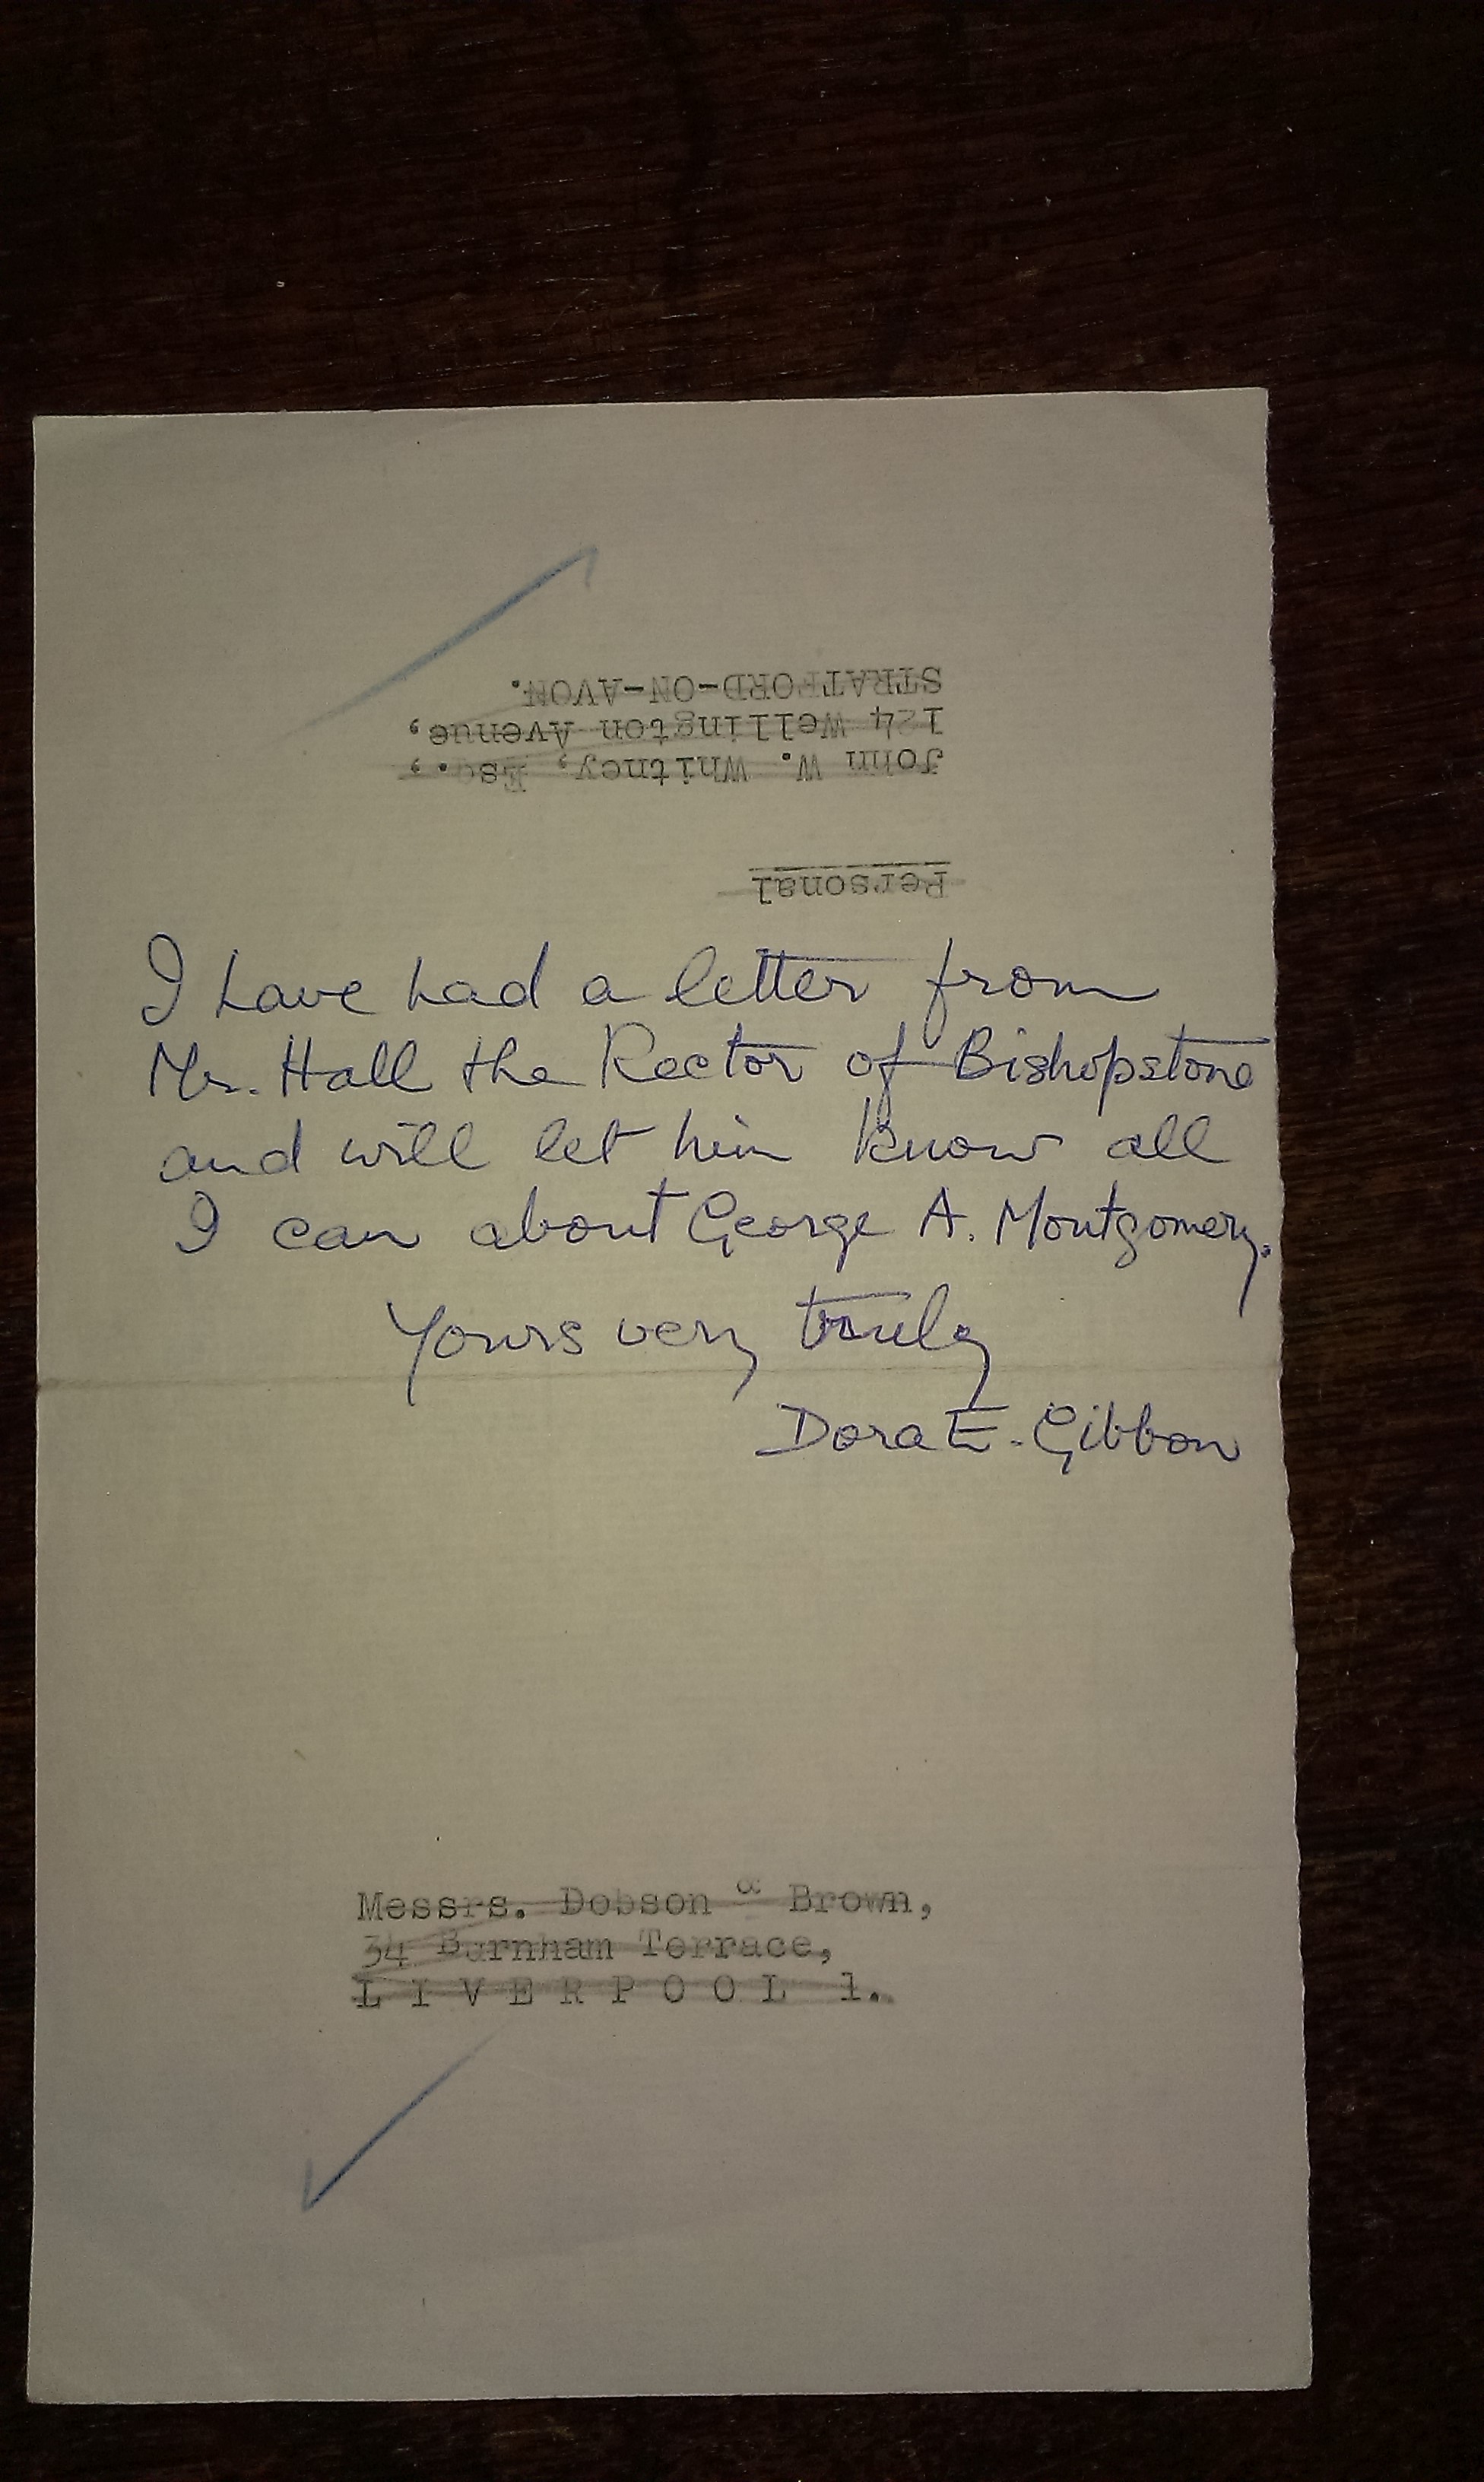 Personal
John W. Whitney, Esq.,
124 Wellington Avenue,
STRATFORD-ON-AVON.
I have had a letter from
Mr. Hall the Rector of Bishopstone
and will let him know all
I can about George A. Montgomery.
Yours very truly
Dora E. Gibbon
Messrs. Dobson & Brown,
34 Burnham Terrace,
L I V E R P O O L 1.